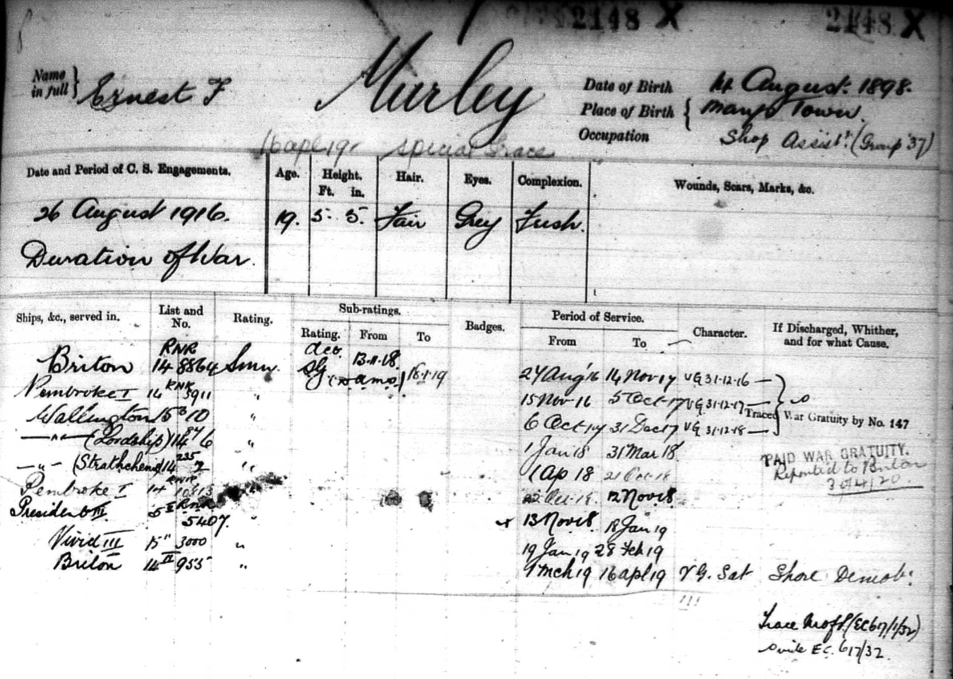 2148 X 2148 X
Name in full } Ernest F Murley
Date of Birth 14 August 1898.
Place of Birth { Mary's Town.
Occupation Shop Assist. (Group 37)
16 apl 19. special trace
Date and Period of C. S. Engagements. Age. Height. Ft. in. Hair. Eyes. Complexion. Wounds, Scars, Marks, &c.
26 August 1916. 19. 5. 5. Fair Grey Fresh.
Duration of War.
Ships, &c., served in. List and No. Rating. Sub-ratings. Rating. From To Badges. Period of Service. From To Character. If Discharged, Whither, and for what Cause.
Briton RNR 14 8864 Smn. SG (DAMS) 13.11.18 16.1.19 27 Aug 16 14 Nov 17 VG 31-12-16
Pembroke I 14 RNR 5911 " 15 Nov 16 5 Oct 17 VG 31-12-17 Traced War Gratuity by No. 147
Wallington 15 10 " 6 Oct 17 31 Dec 17 VG 31-12-18
—"— (Lordship) 14 6 " 1 Jan 18 31 Mar 18
PAID WAR GRATUITY.
—"— (Strathchend 14 " 1 Ap 18 21 Oct 18
Reported to Briton
Pembroke I 14 RNR 22 Oct 18 12 Nov 18
President III 5 RNR 5407 " 13 Nov 18 18 Jan 19
Vivid III 15" 3000 " 19 Jan 19 28 Feb 19
Briton 14 II 955 " 1 Mch 19 16 apl 19 VG. Sat Shore Demob.
Trace (EC67/1/32)
EC. 617/32